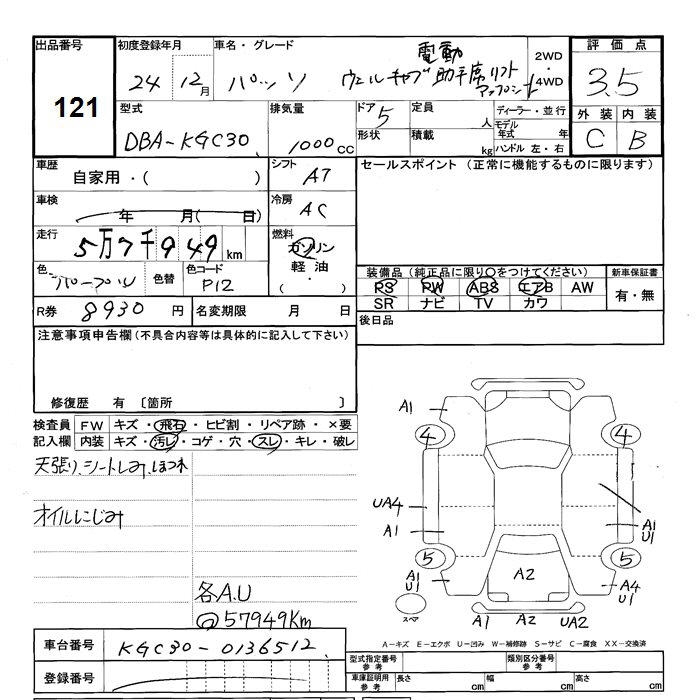 出品番号 初度登録年月 車名・グレード 評価点
121
24 12月 パッソ
電動
ウェルキャブ 助手席リフト
アップシート
2WD
4WD
3.5
型式 排気量 ドア 5 定員 人 ディーラー・並行 外装 内装
DBA-KGC30 1000cc 形状 積載 kg モデル年式 年 C B
ハンドル 左・右
車歴 シフト セールスポイント (正常に機能するものに限ります)
自家用・( ) AT
車検 冷房
年 月( 日) AC
走行 燃料
5万7千949km ガソリン
軽油
( ・ )
色 色替 色コード
パープル P12
装備品(純正品に限り○をつけてください) 新車保証書
PS PW ABS エアB AW 有・無
SR ナビ TV カワ
R券 8930円 名変期限 月 日 後日品
注意事項申告欄(不具合内容等は具体的に記入して下さい)
修復歴 有 〔箇所 〕
検査員 FW キズ・飛石・ヒビ割・リペア跡・×要
記入欄 内装 キズ・汚レ・コゲ・穴・スレ・キレ・破レ
天張り、シートしみ、ほつれ
オイルにじみ
各A.U
@57949Km
A1
4 4
UA4
A1 A1
U1
5 5
A1 A2 A4
U1 U1
スペア A1 A2 UA2
A-キズ E-エクボ U-凹み W-補修跡 S-サビ C-腐食 XX-交換済
車台番号 KGC30-0136512
登録番号
型式指定番号 参考 類別区分番号 参考
車庫証明用 参考 長さ cm 幅 cm 高さ cm